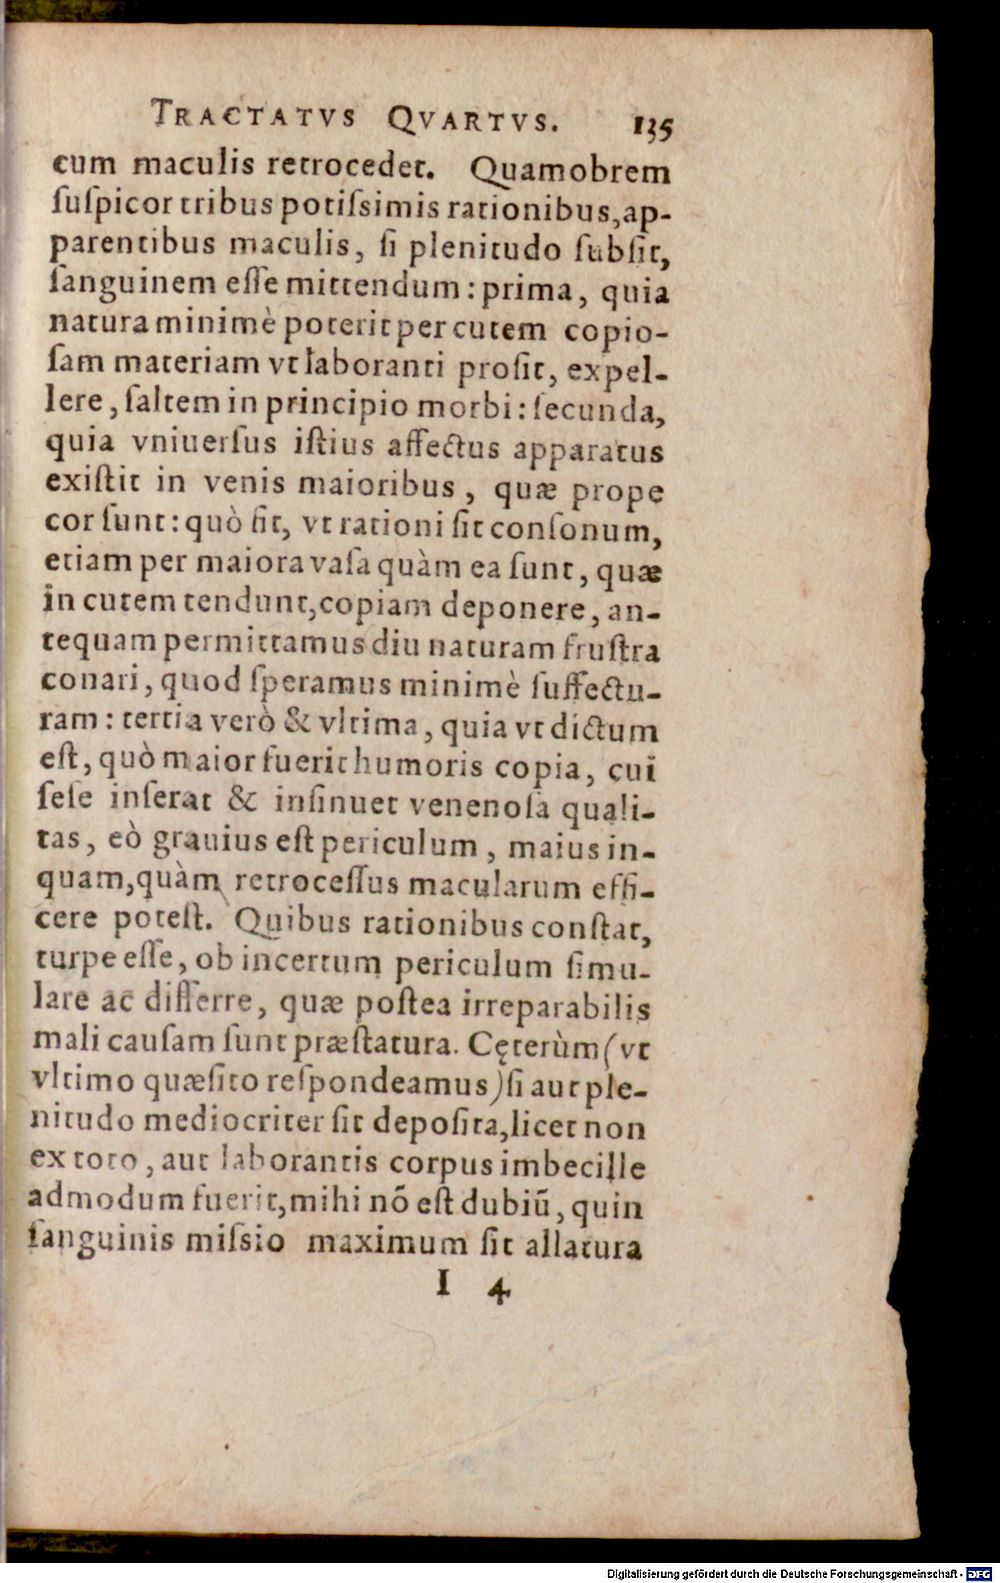 TRACTATVS QVARTVS. 135
cum maculis retrocedet. Quamobrem
ſuſpicor tribus potiſsimis rationibus, ap-
parentibus maculis, ſi plenitudo ſubſit,
ſanguinem eſſe mittendum: prima, quia
natura minimè poterit per cutem copio-
ſam materiam vt laboranti proſit, expel-
lere, ſaltem in principio morbi: ſecunda,
quia vniuerſus iſtius affectus apparatus
exiſtit in venis maioribus, quæ prope
cor ſunt: quò fit, vt rationi ſit conſonum,
etiam per maiora vaſa quàm ea ſunt, quæ
in cutem tendunt, copiam deponere, an-
tequam permittamus diu naturam fruſtra
conari, quod ſperamus minimè ſuffectu-
ram: tertia verò & vltima, quia vt dictum
eſt, quò maior fuerit humoris copia, cui
ſeſe inſerat & inſinuet venenoſa quali-
tas, eò grauius eſt periculum, maius in-
quam, quàm retroceſſus macularum effi-
cere poteſt. Quibus rationibus conſtat,
turpe eſſe, ob incertum periculum ſimu-
lare ac differre, quæ poſtea irreparabilis
mali cauſam ſunt præſtatura. Cęterùm (vt
vltimo quæſito reſpondeamus) ſi aut ple-
nitudo mediocriter ſit depoſita, licet non
ex toto, aut laborantis corpus imbecille
admodum fuerit, mihi nõ eſt dubiũ, quin
ſanguinis miſsio maximum ſit allatura
I 4
Digitalisierung gefördert durch die Deutsche Forschungsgemeinschaft - DFG